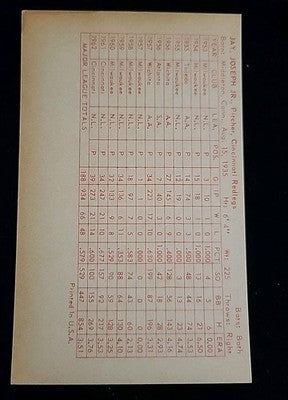 JAY, JOSEPH JR., Pitcher, Cincinnati Redlegs Bats: Both
Born: Middletown, Conn., Aug. 15, 1935 Ht: 6' 4" Wt: 225 Throws: Right
YEAR CLUB LEA. POS. G IP W L PCT SO BB H ERA
1953 Milwaukee N.L. P 3 10 1 0 5 6 0.00
1954 Milwaukee N.L. P 18 1 0 13 21 6.50
1955 Toledo A.A. P 14 74 3 3 .500 48 44 74 3.53
1955 Milwaukee N.L. P 12 19 0 0 .000 3 13 23 4.74
1956 Wichita A.A. P 27 4.56
1956 Atlanta P 2.93
1957 Wichita A.A. P 34 223 17 10 .630 199 87 196 3.51
1957 Milwaukee N.L. P 1 0 0 .000
1958 Milwaukee N.L. P 18 97 7 5 .583 74 43
1959 Milwaukee N.L. P 34 136 6 11 .353 88 64 130 4.10
1960 Milwaukee N.L. P 32 133 9 8 .529 90 59 128
1961 Cincinnati N.L. P 34 247 21 10 .677 157 92 217 3.53
1962 Cincinnati N.L. P 39 273 21 14 .600 155 100 269 3.76
MAJOR LEAGUE TOTALS 188 934 66 48 .579 3.53
Printed in U.S.A.